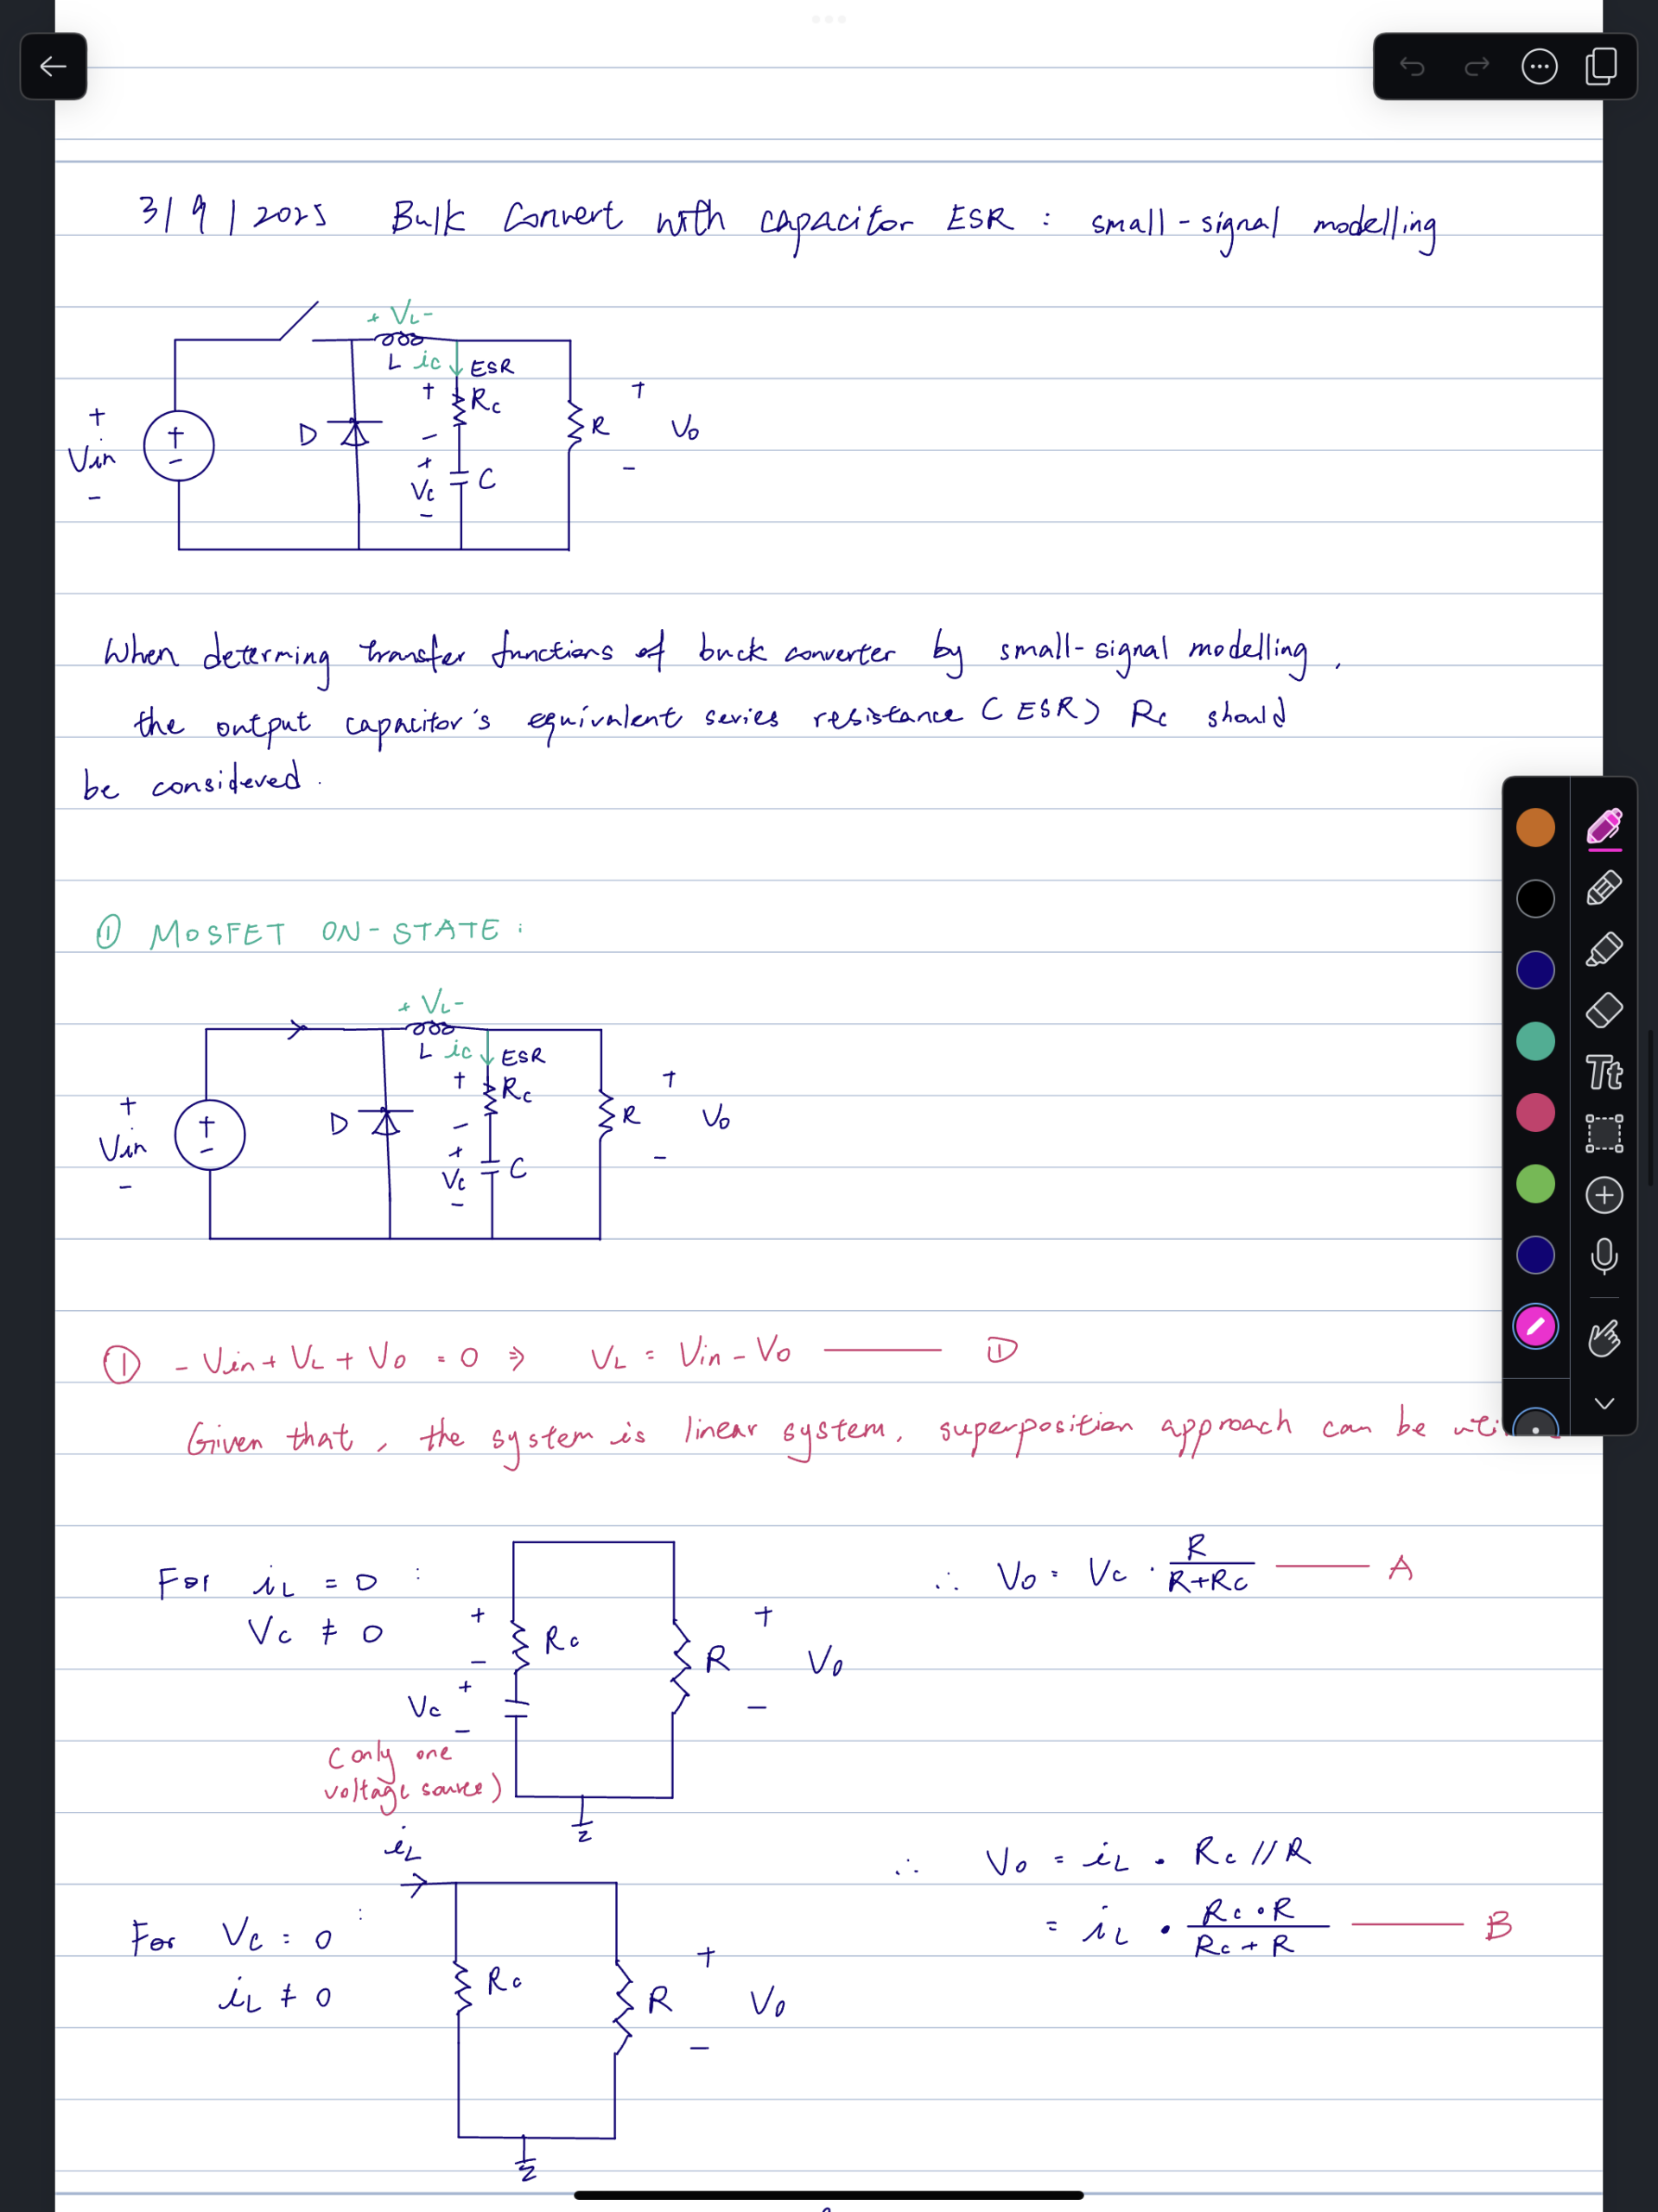 3/9/2025 Bulk Convert with capacitor ESR : small-signal modelling
+ VL -
L ic ESR
+ Rc +
+ Vin - + - D - R Vo
+ Vc - C -
When determing transfer functions of buck converter by small-signal modelling,
the output capacitor's equivalent series resistance (ESR) Rc should
be considered.
① MOSFET ON-STATE :
+ VL -
L ic ESR
+ Rc +
+ Vin - + - D - R Vo
+ Vc - C -
① - Vin + VL + Vo = 0 ⇒ VL = Vin - Vo ——— ①
Given that, the system is linear system, superposition approach can be
For iL = 0 : ∴ Vo = Vc · R/(R+Rc) ——— A
Vc ≠ 0 + Rc - R + Vo -
Vc + -
(only one
voltage source)
iL
∴ Vo = iL · Rc // R
For Vc = 0 : = iL · (Rc · R)/(Rc + R) ——— B
iL ≠ 0 Rc R + Vo -
Tt